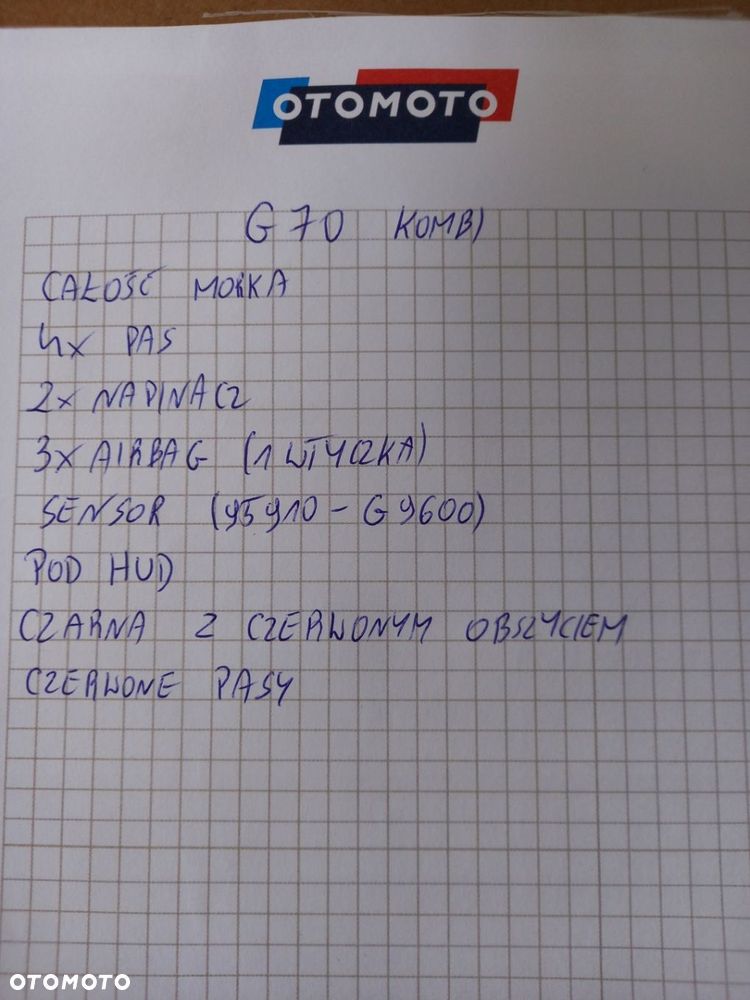 OTOMOTO
G70 KOMBI
CAŁOŚĆ MOKKA
4x PAS
2x NAPINACZ
3x AIRBAG (1 WTYCZKA)
SENSOR (95910-G9600)
POD HUD
CZARNA Z CZERWONYM OBSZYCIEM
CZERWONE PASY
OTOMOTO